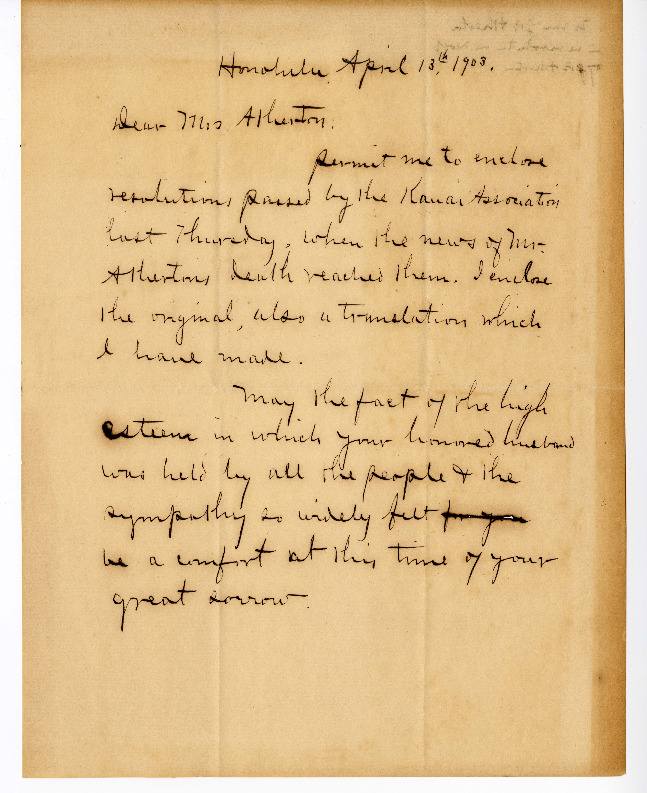 Honolulu, April 13th, 1903.
Dear Mrs Atherton,
permit me to enclose
resolutions passed by the Kauai Association
last Thursday, when the news of Mr.
Athertons death reached them. I enclose
the original, also a translation which
I have made.
May the fact of the high
esteem in which your honored husband
was held by all the people & the
sympathy so widely felt for you
be a comfort at this time of your
great sorrow.